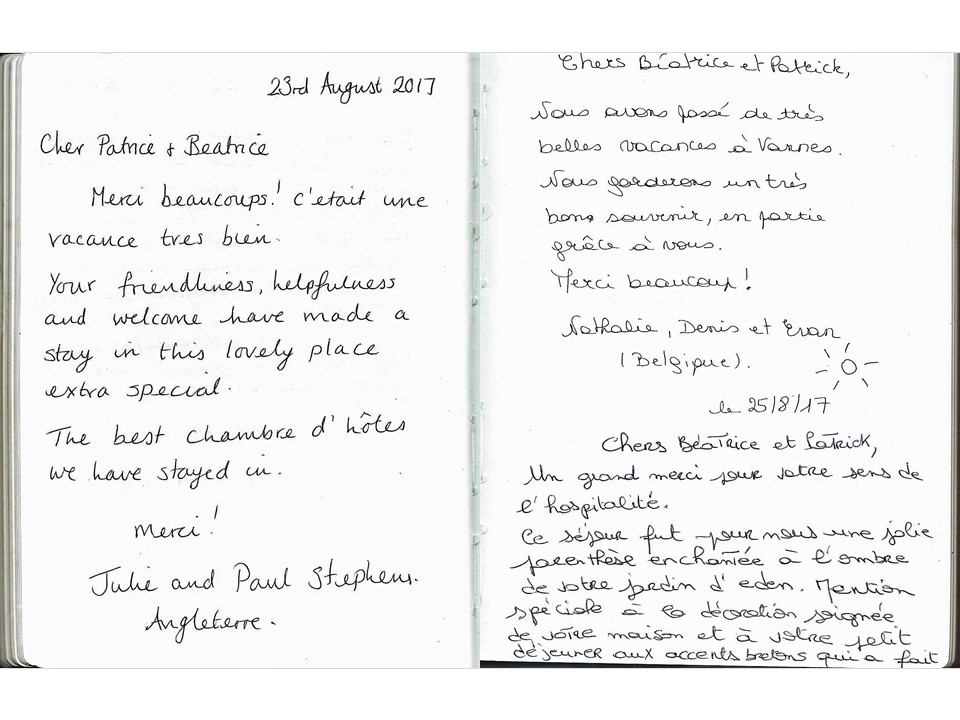 23rd August 2017
Cher Patrice & Beatrice
Merci beaucoups! c'etait une
vacance tres bien.
Your friendliness, helpfulness
and welcome have made a
stay in this lovely place
extra special.
The best chambre d'hôtes
we have stayed in.
Merci!
Julie and Paul Stephens.
Angleterre.
Chers Béatrice et Patrick,
Nous avons passé de très
belles vacances à Vannes.
Nous garderons un très
bon souvenir, en partie
grâce à vous.
Merci beaucoup!
Nathalie, Denis et Evan
(Belgique).
le 25/8/17
Chers Béatrice et Patrick,
Un grand merci pour votre sens de
l'hospitalité.
Ce séjour fut pour nous une jolie
parenthèse enchantée à l'ombre
de votre jardin d'eden. Mention
spéciale à la décoration soignée
de votre maison et à votre petit
déjeuner aux accents bretons qui a fait